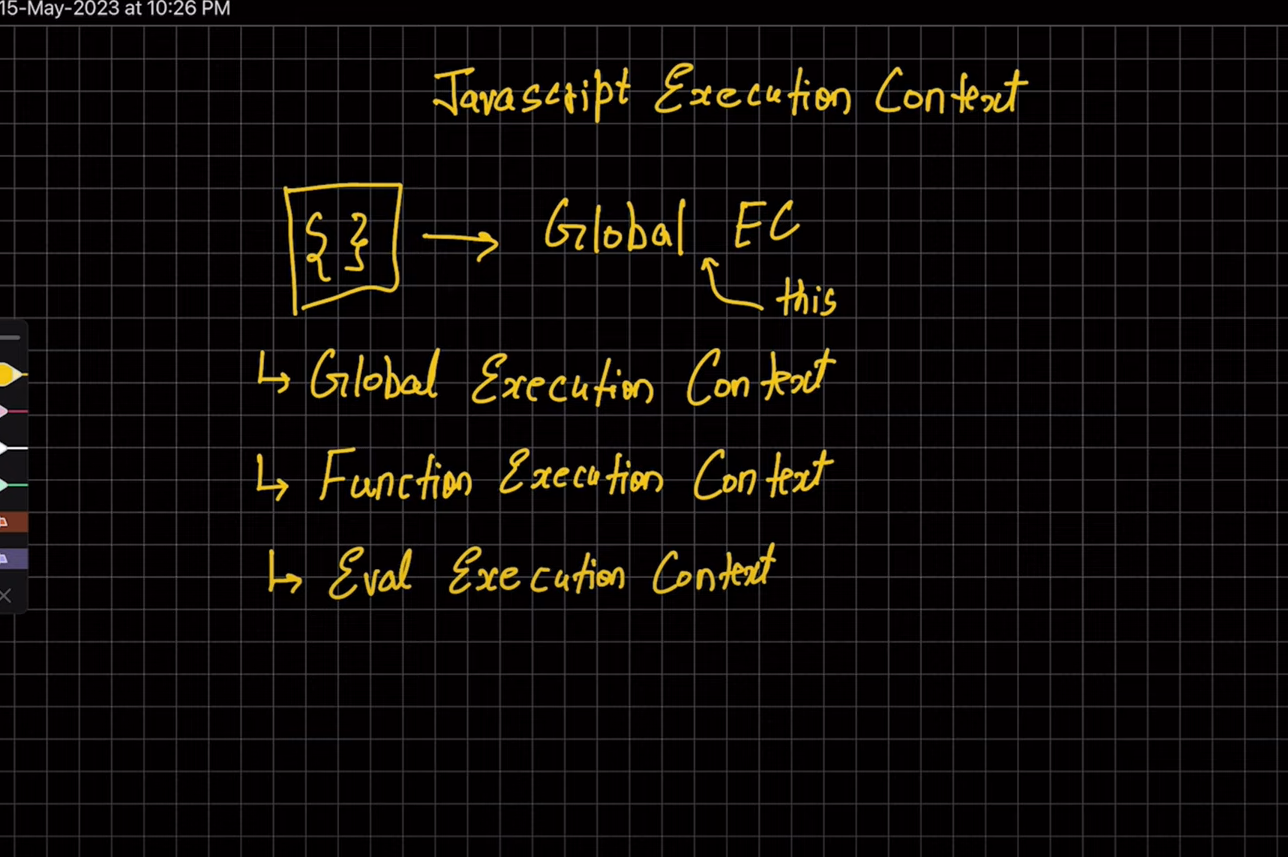 15-May-2023 at 10:26 PM
Javascript Execution Context
{ } → Global EC
this
↳ Global Execution Context
↳ Function Execution Context
↳ Eval Execution Context